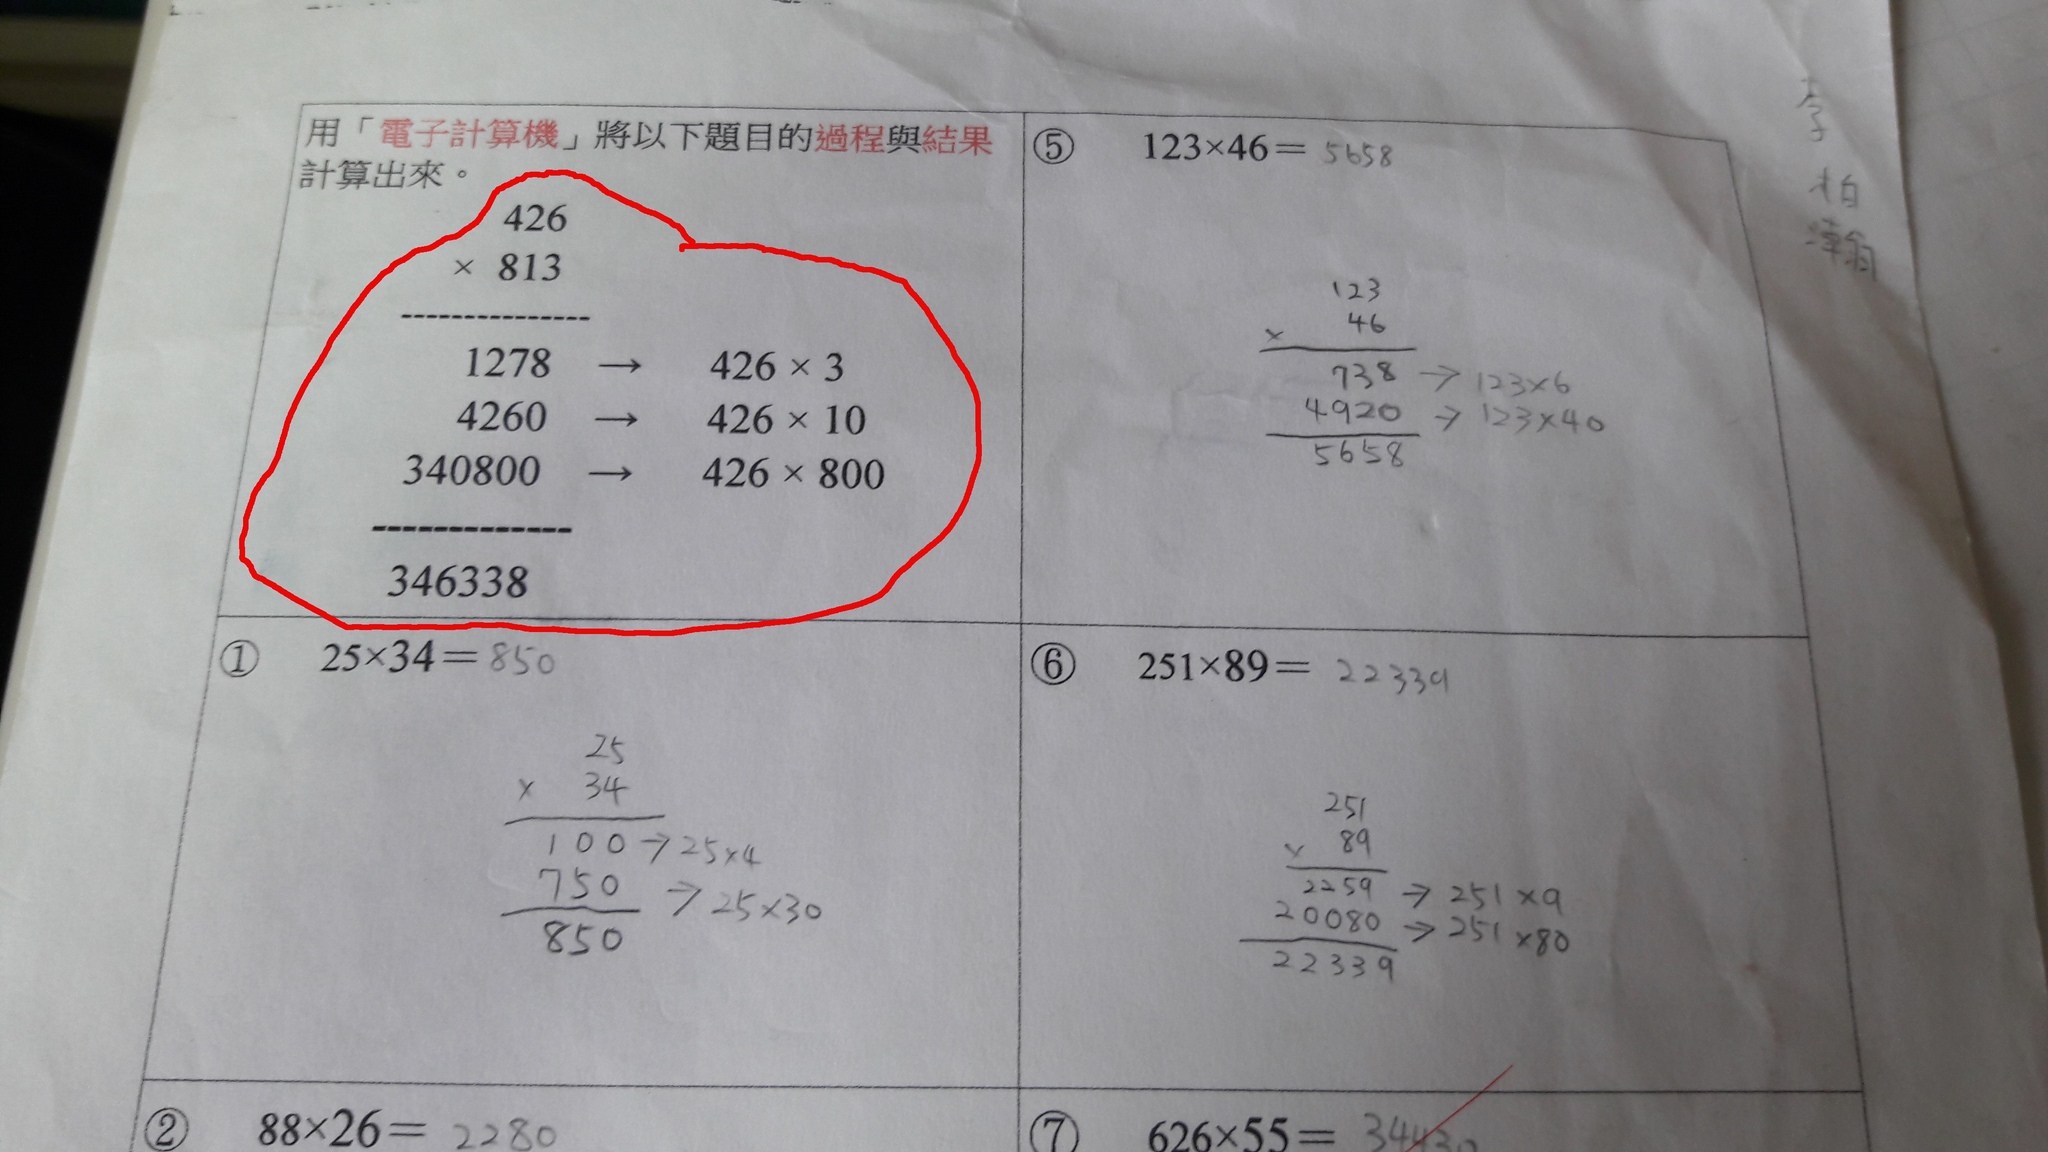 用「電子計算機」將以下題目的過程與結果
計算出來。
426
× 813
---------------
1278 → 426 × 3
4260 → 426 × 10
340800 → 426 × 800
-------------
346338
① 25×34＝850
25
× 34
100→25×4
750→25×30
850
② 88×26＝2280
⑤ 123×46＝5658
123
× 46
738→123×6
4920→123×40
5658
⑥ 251×89＝22339
251
× 89
2259→251×9
20080→251×80
22339
⑦ 626×55＝34430
李柏瀚